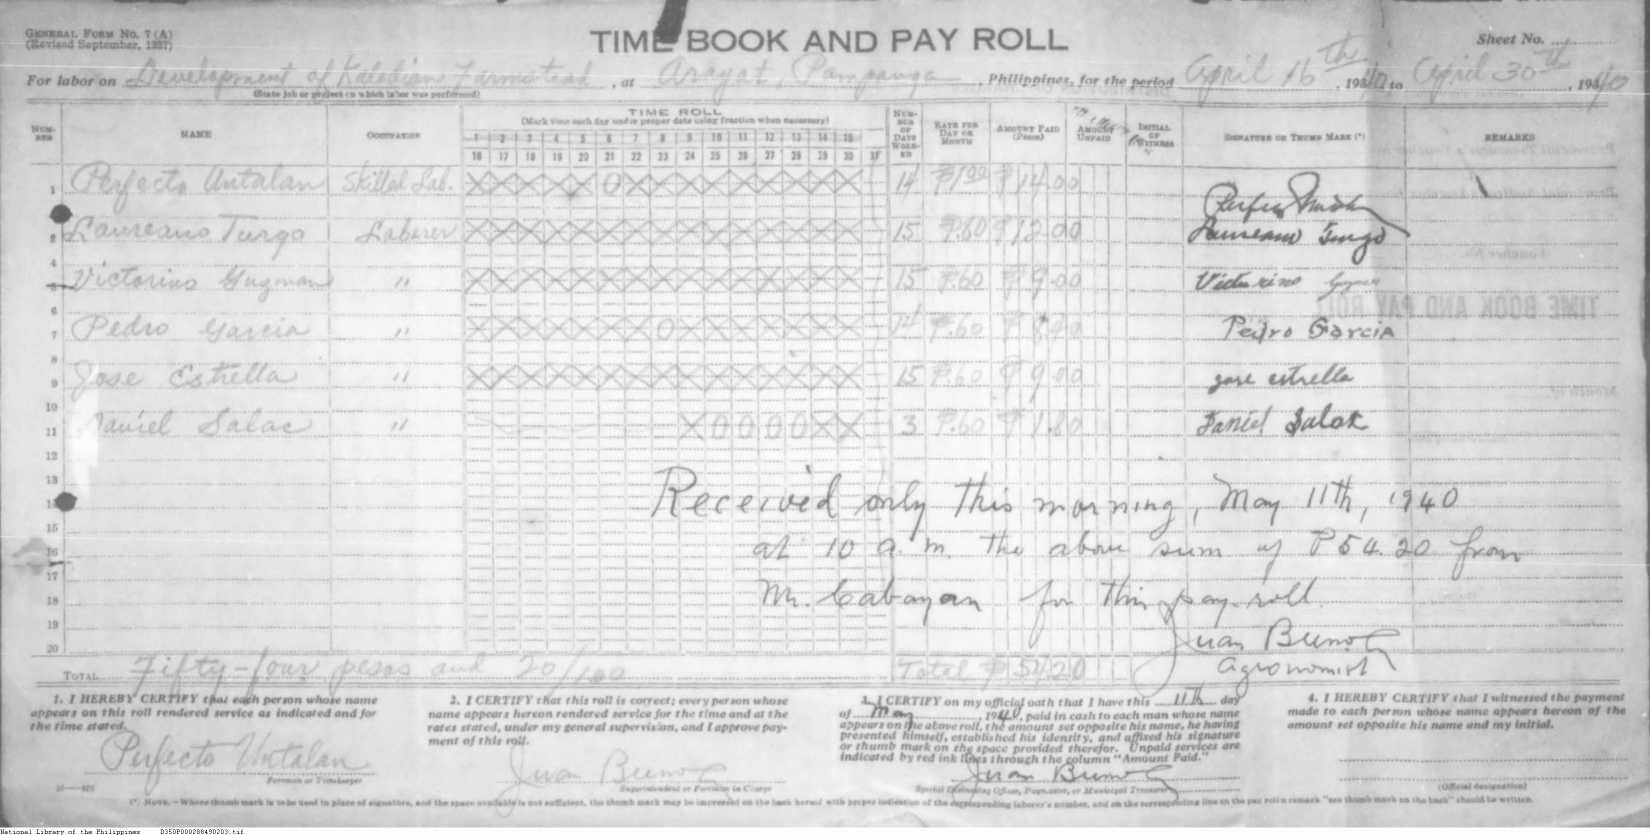 GENERAL FORM NO. 7 (A)
(Revised September, 1937)
TIME BOOK AND PAY ROLL
Sheet No.
For labor on Development of Kalabian Farmstead, at Arayat, Pampanga, Philippines, for the period April 16th, 1940 to April 30th, 1940
(State job or project on which labor was performed)
NUMBER NAME OCCUPATION
TIME ROLL
(Mark time each day under proper date using fraction when necessary)
1 2 3 4 5 6 7 8 9 10 11 12 13 14 15
16 17 18 19 20 21 22 23 24 25 26 27 28 29 30 31
NUMBER OF DAYS WORKED
RATE PER DAY OR MONTH
AMOUNT PAID (Pesos)
AMOUNT UNPAID
INITIAL OF WITNESS
SIGNATURE OR THUMB MARK (*)
REMARKS
1 Perfecto Untalan Skilled Lab. X X X X X O X X X X X X X X X 14 ₱1.00 ₱14.00
2 Laureano Tungo Laborer X X X X X X X X X X X X X X X 15 ₱.80 ₱12.00 Laureano Tungo
4
Victorino Guzman " X X X X X X X X X X X X X X X 15 ₱.60 ₱9.00 Victorino Guzman
6
7 Pedro Garcia " X X X X X X X O X X X X X X X 14 ₱.60 ₱8.40 Pedro Garcia
8
9 Jose Estrella " X X X X X X X X X X X X X X X 15 ₱.60 ₱9.00 jose estrella
10
11 Daniel Salac " X O O O O X X 3 ₱.60 ₱1.80 Daniel Salak
12
13
14
Received only this morning, May 11th, 1940
15
at 10 a.m. the above sum of ₱54.20 from
16
17
Mr. Cabayan for this pay-roll.
18
19
Juan
20
Agronomist
TOTAL Fifty-four pesos and 20/100 Total ₱54.20
1. I HEREBY CERTIFY that each person whose name
appears on this roll rendered service as indicated and for
the time stated.
Perfecto Untalan
Foreman or Timekeeper
2. I CERTIFY that this roll is correct; every person whose
name appears hereon rendered service for the time and at the
rates stated, under my general supervision, and I approve pay-
ment of this roll.
Juan
Superintendent or Foreman in Charge
3. I CERTIFY on my official oath that I have this 11th day
of May, 1940, paid in cash to each man whose name
appears on the above roll, the amount set opposite his name, he having
presented himself, established his identity, and affixed his signature
or thumb mark on the space provided therefor. Unpaid services are
indicated by red ink lines through the column "Amount Paid."
Juan
Special Disbursing Officer, Paymaster, or Municipal Treasurer
4. I HEREBY CERTIFY that I witnessed the payment
made to each person whose name appears hereon of the
amount set opposite his name and my initial.
(Official designation)
(*). NOTE.—Where thumb mark is to be used in place of signature, and the space available is not sufficient, the thumb mark may be impressed on the back hereof with proper indication of the corresponding laborer's number, and on the corresponding line on the pay roll a remark "see thumb mark on the back" should be written.
National Library of the Philippines D350P000288490203.tif